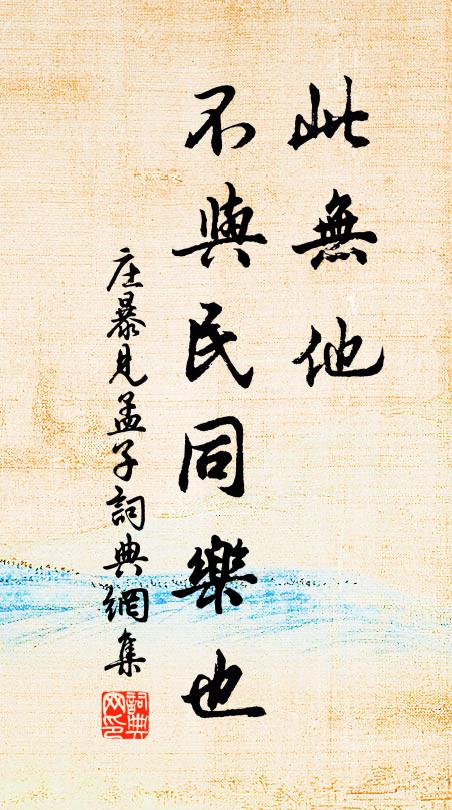 此無他
不與民同樂也
庄暴見孟子詞典網集
詞典
网印